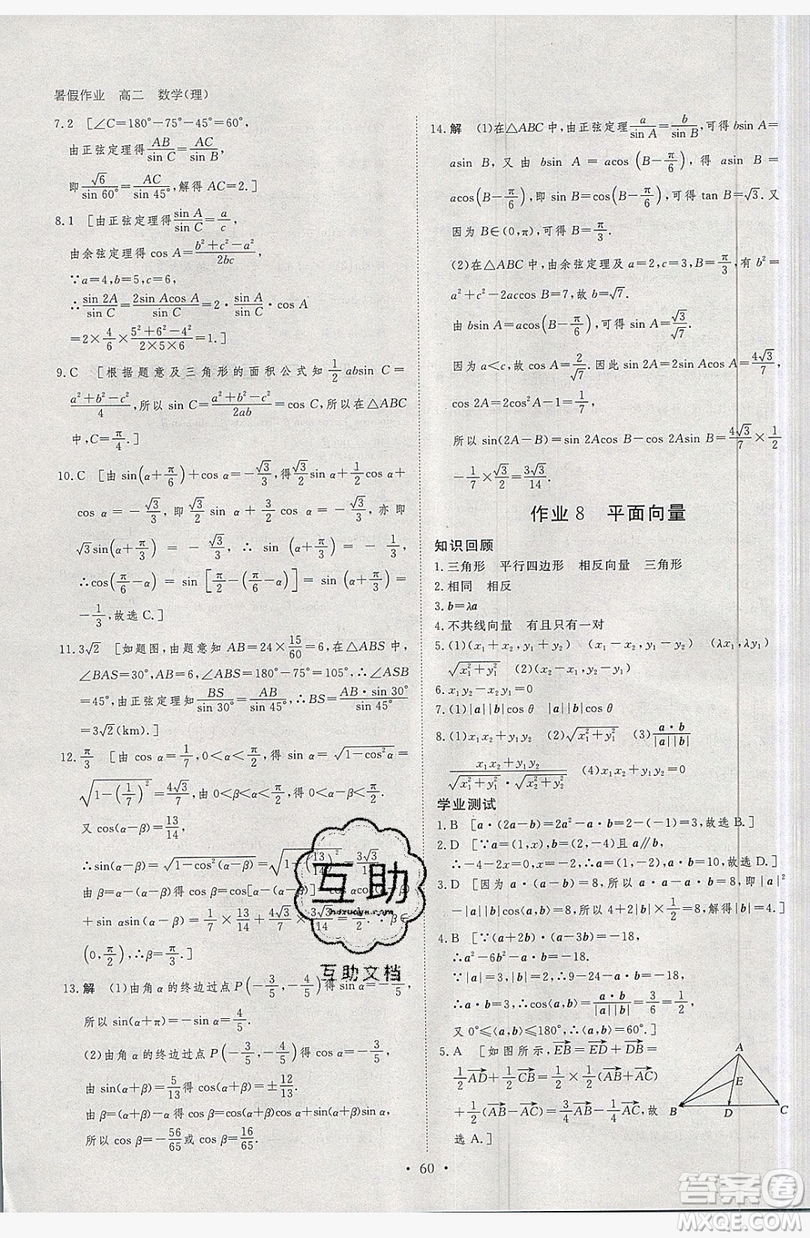 暑假作业 高二 数学(理)
7.2 [∠C=180°-75°-45°=60°,
由正弦定理得AB/sin C=AC/sin B,
即√6/sin 60°=AC/sin 45°,所以AC=2.]
8.1 [由正弦定理得sin A/sin C=a/c,
由余弦定理得 cos A=(b²+c²-a²)/2bc,
∵a=4,b=5,c=6,
∴sin 2A/sin C=2sin Acos A/sin C=2·sin A/sin C·cos A
=2×4/6×(5²+6²-4²)/(2×5×6)=1.]
9.C [根据题意及三角形的面积公式知1/2absin C=
(a²+b²-c²)/4,所以sin C=(a²+b²-c²)/2ab=cos C,所以在△ABC
中,C=π/4.]
10.C [由sin(α+π/6)+cos α=-√3/3,得√3/2sin α+1/2
cos α+cos α=-√3/3,即√3/2sin α+3/2cos α=-√3/3,亦即
√3sin(α+π/3)=-√3/3,∴sin(α+π/3)=-1/3,
∴cos(π/6-α)=sin[π/2-(π/6-α)]=sin(π/3+α)=
-1/3,故选C.]
11.3√2 [如题图,由题意知AB=24×15/60=6,在△ABS中,
∠BAS=30°,AB=6,∠ABS=180°-75°=105°,∴∠ASB
=45°,由正弦定理知BS/sin 30°=AB/sin 45°,∴BS=AB·sin 30°/sin 45°
=3√2(km).]
12.π/3 [由cos α=1/7,0<α<π/2得sin α=√(1-cos²α)=
√(1-(1/7)²)=4√3/7,由0<β<α<π/2得0<α-β<π/2.
又cos(α-β)=13/14,
∴sin(α-β)=√(1-cos²(α-β))=√(1-(13/14)²)=3√3/14.
由β=α-(α-β)得cos β=cos[α-(α-β)]=cos αcos(α-β)
+sin αsin(α-β)=1/7×13/14+4√3/7×3√3/14=1/2,∵β∈
(0,π/2),∴β=π/3.]
13.解 (1)由角α的终边过点P(-3/5,-4/5)得sin α=-4/5,
所以sin(α+π)=-sin α=4/5.
(2)由角α的终边过点P(-3/5,-4/5)得cos α=-3/5,
由sin(α+β)=5/13得cos(α+β)=±12/13.
由β=(α+β)-α得cos β=cos(α+β)cos α+sin(α+β)sin α,
所以cos β=-56/65或cos β=16/65.
14.解 (1)在△ABC中,由正弦定理a/sin A=b/sin B,可得bsin A=
asin B,又由bsin A=acos(B-π/6),得asin B=
acos(B-π/6),即sin B=cos(B-π/6),可得tan B=√3.又
因为B∈(0,π),可得B=π/3.
(2)在△ABC中,由余弦定理及a=2,c=3,B=π/3,有b²=
a²+c²-2accos B=7,故b=√7.
由bsin A=acos(B-π/6),可得sin A=√3/√7.
因为a<c,故cos A=2/√7.因此sin 2A=2sin Acos A=4√3/7,
cos 2A=2cos²A-1=1/7.
所以sin(2A-B)=sin 2Acos B-cos 2Asin B=4√3/7×1/2
-1/7×√3/2=3√3/14.
作业8 平面向量
知识回顾
1.三角形 平行四边形 相反向量 三角形
2.相同 相反
3.b=λa
4.不共线向量 有且只有一对
5.(1)(x₁+x₂,y₁+y₂) (x₁-x₂,y₁-y₂) (λx₁,λy₁)
√(x₁²+y₁²)
6.x₁y₂-x₂y₁=0
7.(1)|a||b|cos θ |a||b|cos θ
8.(1)x₁x₂+y₁y₂ (2)√(x₁²+y₁²) (3)a·b/|a||b|
(x₁x₂+y₁y₂)/(√(x₁²+y₁²)·√(x₂²+y₂²)) (4)x₁x₂+y₁y₂=0
学业测试
1.B [a·(2a-b)=2a²-a·b=2-(-1)=3,故选B.]
2.D [∵a=(1,x),b=(-2,4),且a∥b,
∴-4-2x=0,x=-2,∴a=(1,-2),a·b=-10,故选D.]
3.D [因为a·(a-b)=8,所以a·a-a·b=8,即|a|²
-|a||b|cos⟨a,b⟩=8,所以4+2|b|×1/2=8,解得|b|=4.]
4.B [∵(a+2b)·(a-3b)=-18,
∴a²-6b²-a·b=-18,
∵|a|=3,|b|=2,∴9-24-a·b=-18,
∴a·b=3,∴cos⟨a,b⟩=a·b/|a||b|=3/6=1/2,
又0°≤⟨a,b⟩≤180°,∴⟨a,b⟩=60°.]
5.A [如图所示,EB=ED+DB=
1/2AD+1/2CB=1/2×1/2(AB+AC)+
1/2(AB-AC)=3/4AB-1/4AC,故
选A.]
A
E
B D C
· 60 ·
互助
互助文档
答案圈
MXQE.COM